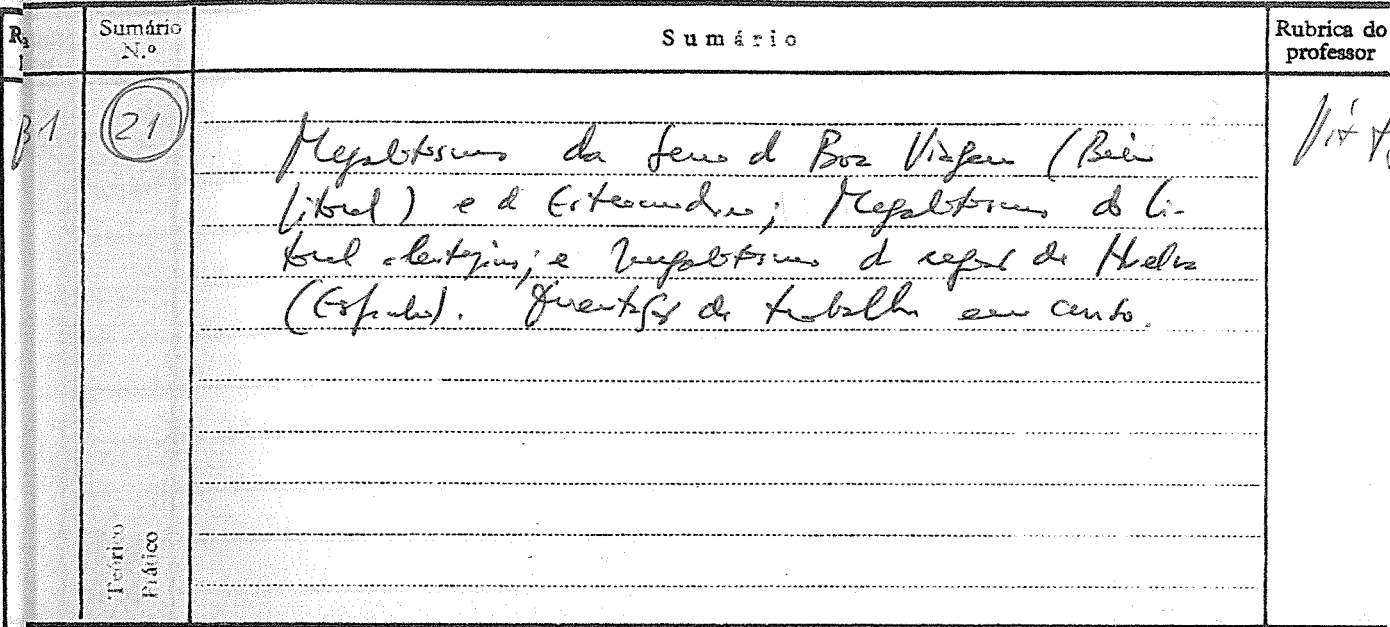 Sumário
N.º
Sumário
Rubrica do
professor
21
Megalitismo da Serra d Boa Viagem (Beira
Litoral) e d Estremadura; Megalitismo do Li-
toral alentejano; e megalitismo d região de Huelva
(Espanha). de trabalho em
Teórico
Prático